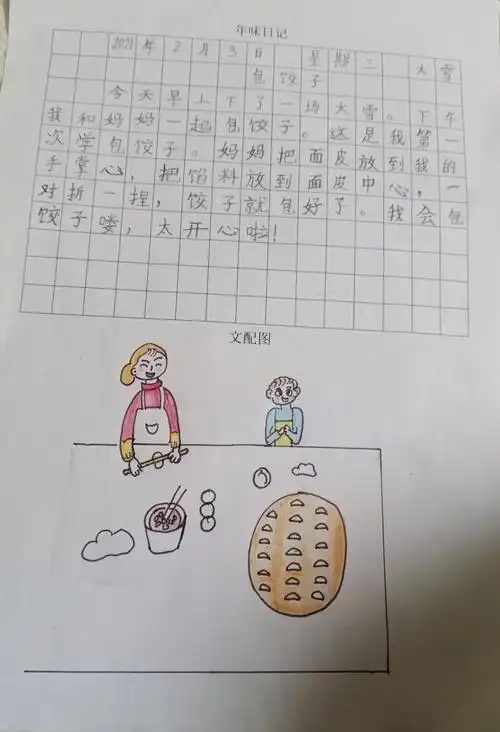 年味日记
2021年2月3日 星期三 大雪
包饺子
今天早上下了一场大雪。下午
我和妈妈一起包饺子。这是我第一
次学包饺子。妈妈把面皮放到我的
手掌心，把馅料放到面皮中心，一
对折一捏，饺子就包好了。我会包
饺子喽，太开心啦！
文配图